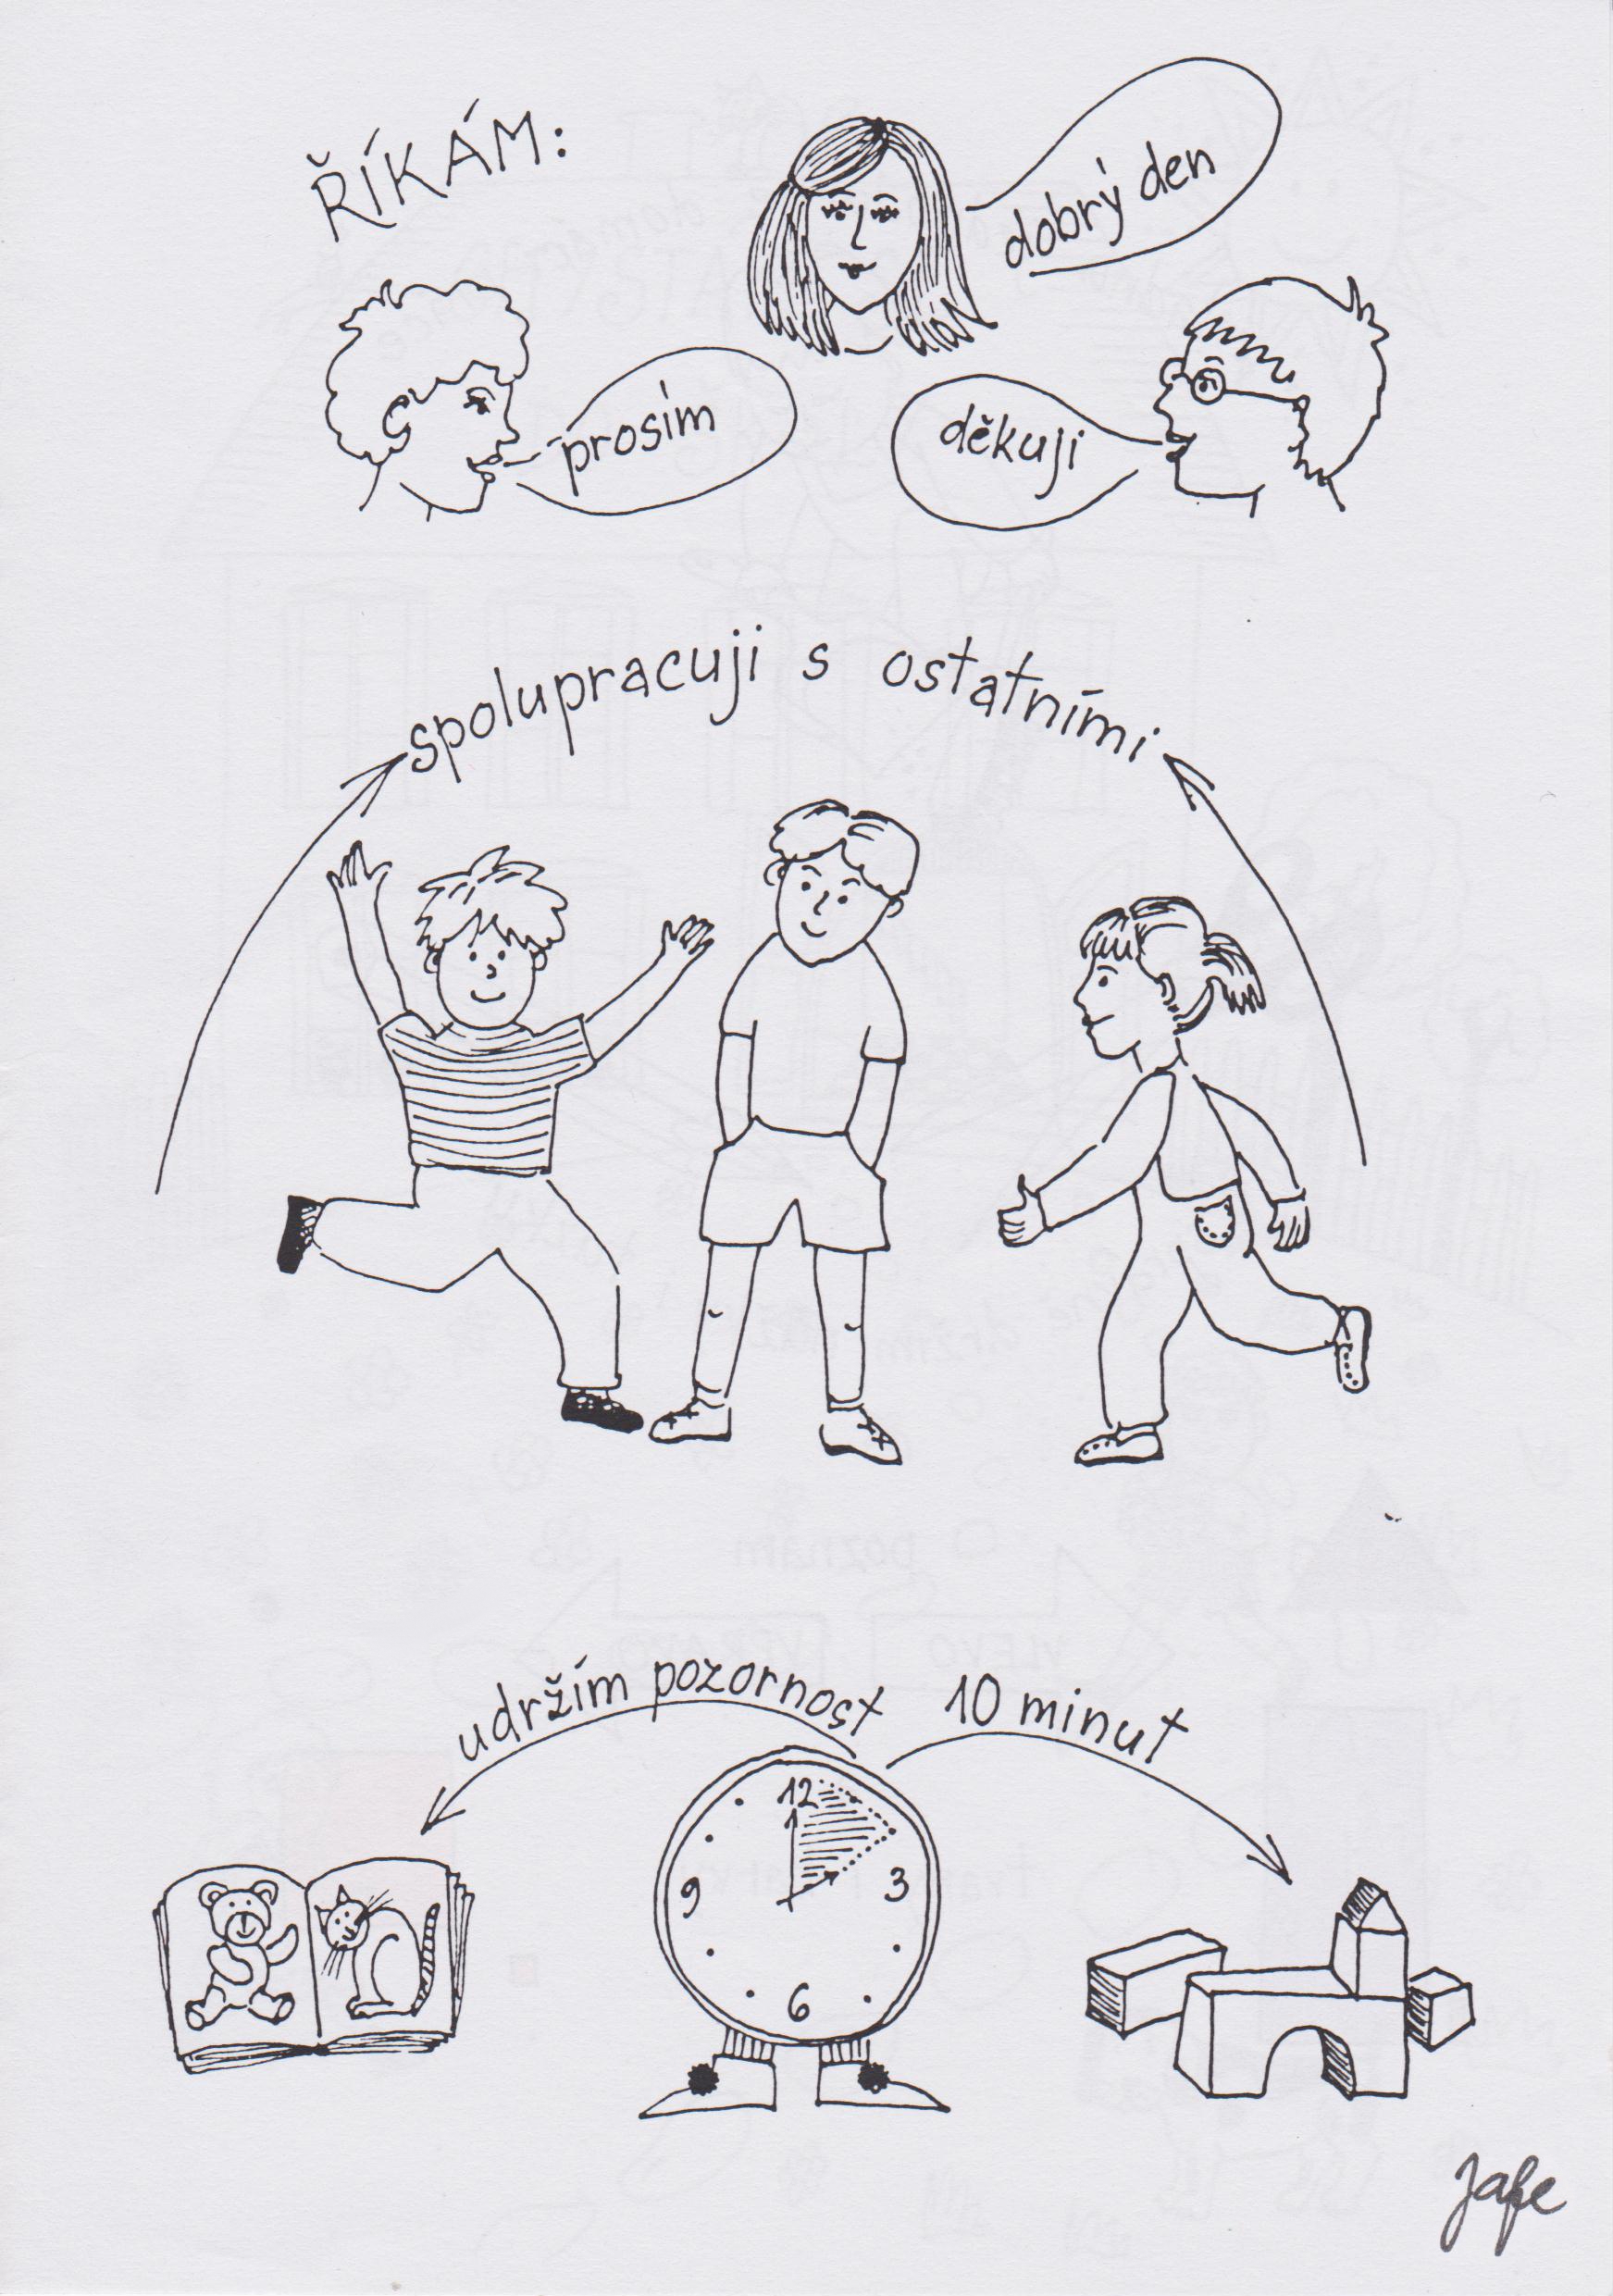 ŘÍKÁM:
dobrý den
prosím
děkuji
spolupracuji s ostatními
udržím pozornost 10 minut
12
3
6
9
Jafe